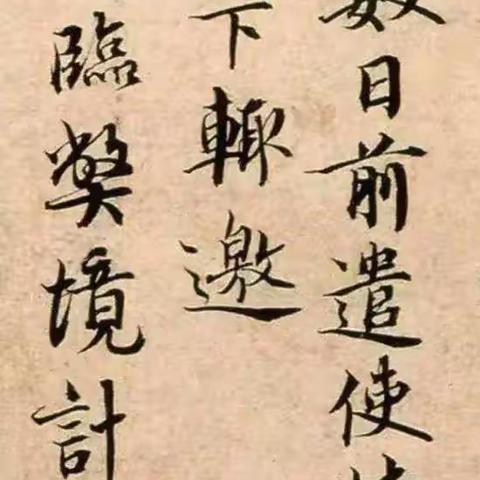 数日前遣使
下輙邀
臨弊境計